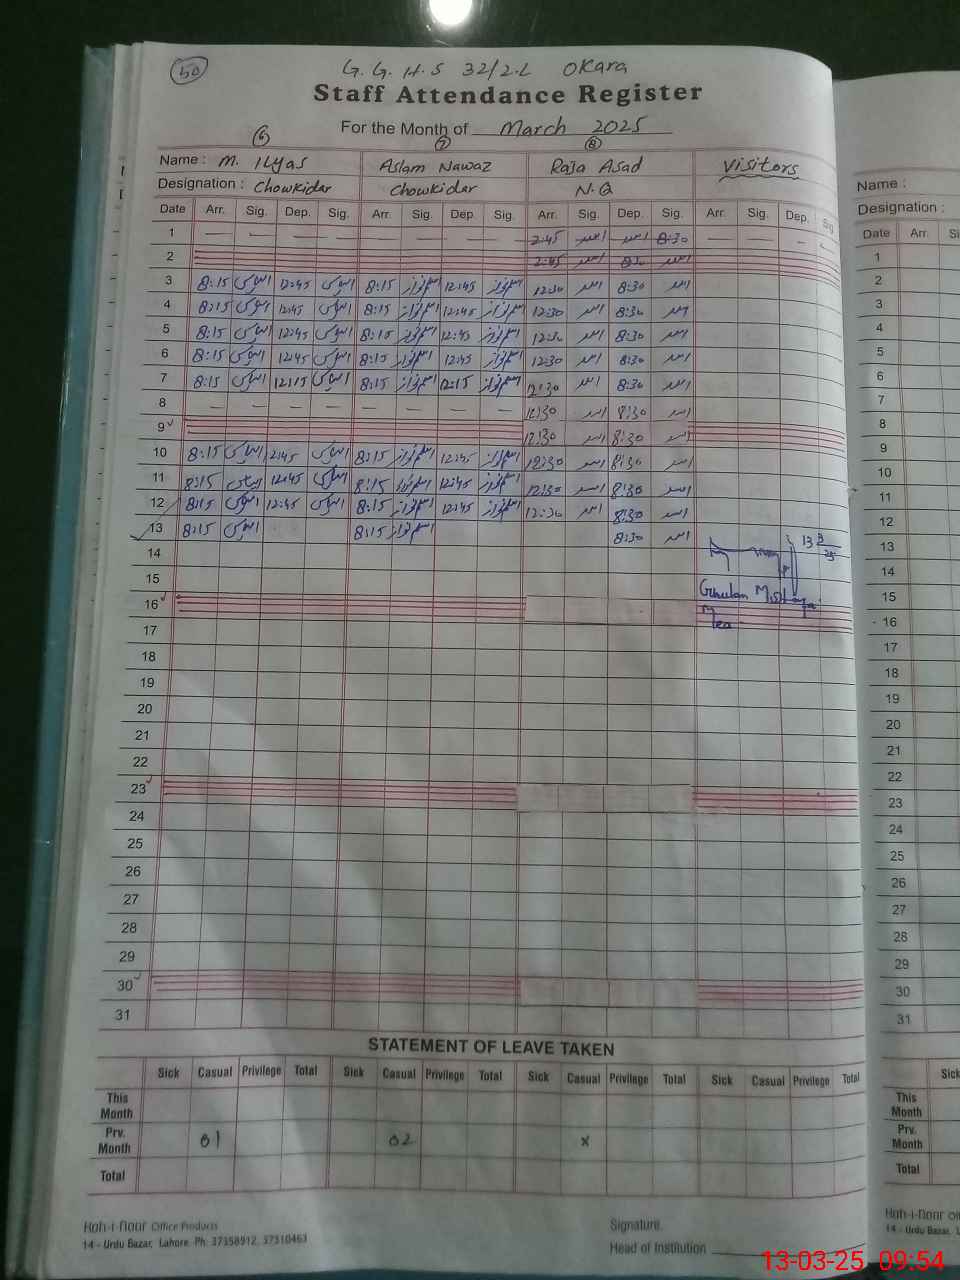 50
G. G. H. S 32/2.L Okara
Staff Attendance Register
For the Month of March 2025
6 7 8
Name : M. Ilyas Aslam Nawaz Raja Asad Visitors
Designation : Chowkidar Chowkidar N.Q
Date Arr. Sig. Dep. Sig. Arr. Sig. Dep. Sig. Arr. Sig. Dep. Sig. Arr. Sig. Dep. Sig
1 — — — — — — — — 2:45 اسد اسد 8:30 — — - -
2 2:45 اسد 8:30 اسد
3 8:15 الیاس 12:45 الیاس 8:15 اسلم نواز 12:45 اسلم نواز 12:30 اسد 8:30 اسد
4 8:15 الیاس 12:45 الیاس 8:15 اسلم نواز 12:45 اسلم نواز 12:30 اسد 8:30 اسد
5 8:15 الیاس 12:45 الیاس 8:15 اسلم نواز 12:45 اسلم نواز 12:30 اسد 8:30 اسد
6 8:15 الیاس 12:45 الیاس 8:15 اسلم نواز 12:45 اسلم نواز 12:30 اسد 8:30 اسد
7 8:15 الیاس 12:15 الیاس 8:15 اسلم نواز 12:15 اسلم نواز 12:30 اسد 8:30 اسد
8 — — — — — — — — 12:30 اسد 8:30 اسد
9 12:30 اسد 8:30 اسد
10 8:15 الیاس 12:45 الیاس 8:15 اسلم نواز 12:45 اسلم نواز 12:30 اسد 8:30 اسد
11 8:15 الیاس 12:45 الیاس 8:15 اسلم نواز 12:45 اسلم نواز 12:30 اسد 8:30 اسد
12 8:15 الیاس 12:45 الیاس 8:15 اسلم نواز 12:45 اسلم نواز 12:30 اسد 8:30 اسد
13 8:15 الیاس 8:15 اسلم نواز 8:30 اسد 13 3/25
14
15 Ghulam
16 Mea
17
18
19
20
21
22
23
24
25
26
27
28
29
30
31
STATEMENT OF LEAVE TAKEN
Sick Casual Privilege Total Sick Casual Privilege Total Sick Casual Privilege Total Sick Casual Privilege Total
This Month
Prv. Month 01 02 x
Total
Koh-i-Noor Office Products
14 - Urdu Bazar, Lahore. Ph: 37358912, 37310463
Signature.
Head of Institution
Name :
Designation :
Date Arr. Si
1
2
3
4
5
6
7
8
9
10
11
12
13
14
15
16
17
18
19
20
21
22
23
24
25
26
27
28
29
30
31
Sick
This Month
Prv. Month
Total
Koh-i-Noor
14 - Urdu Bazar,
13-03-25 09:54